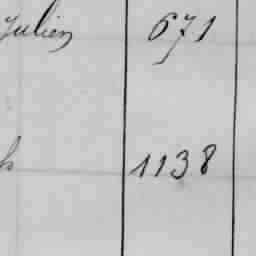 Julien 671
1138